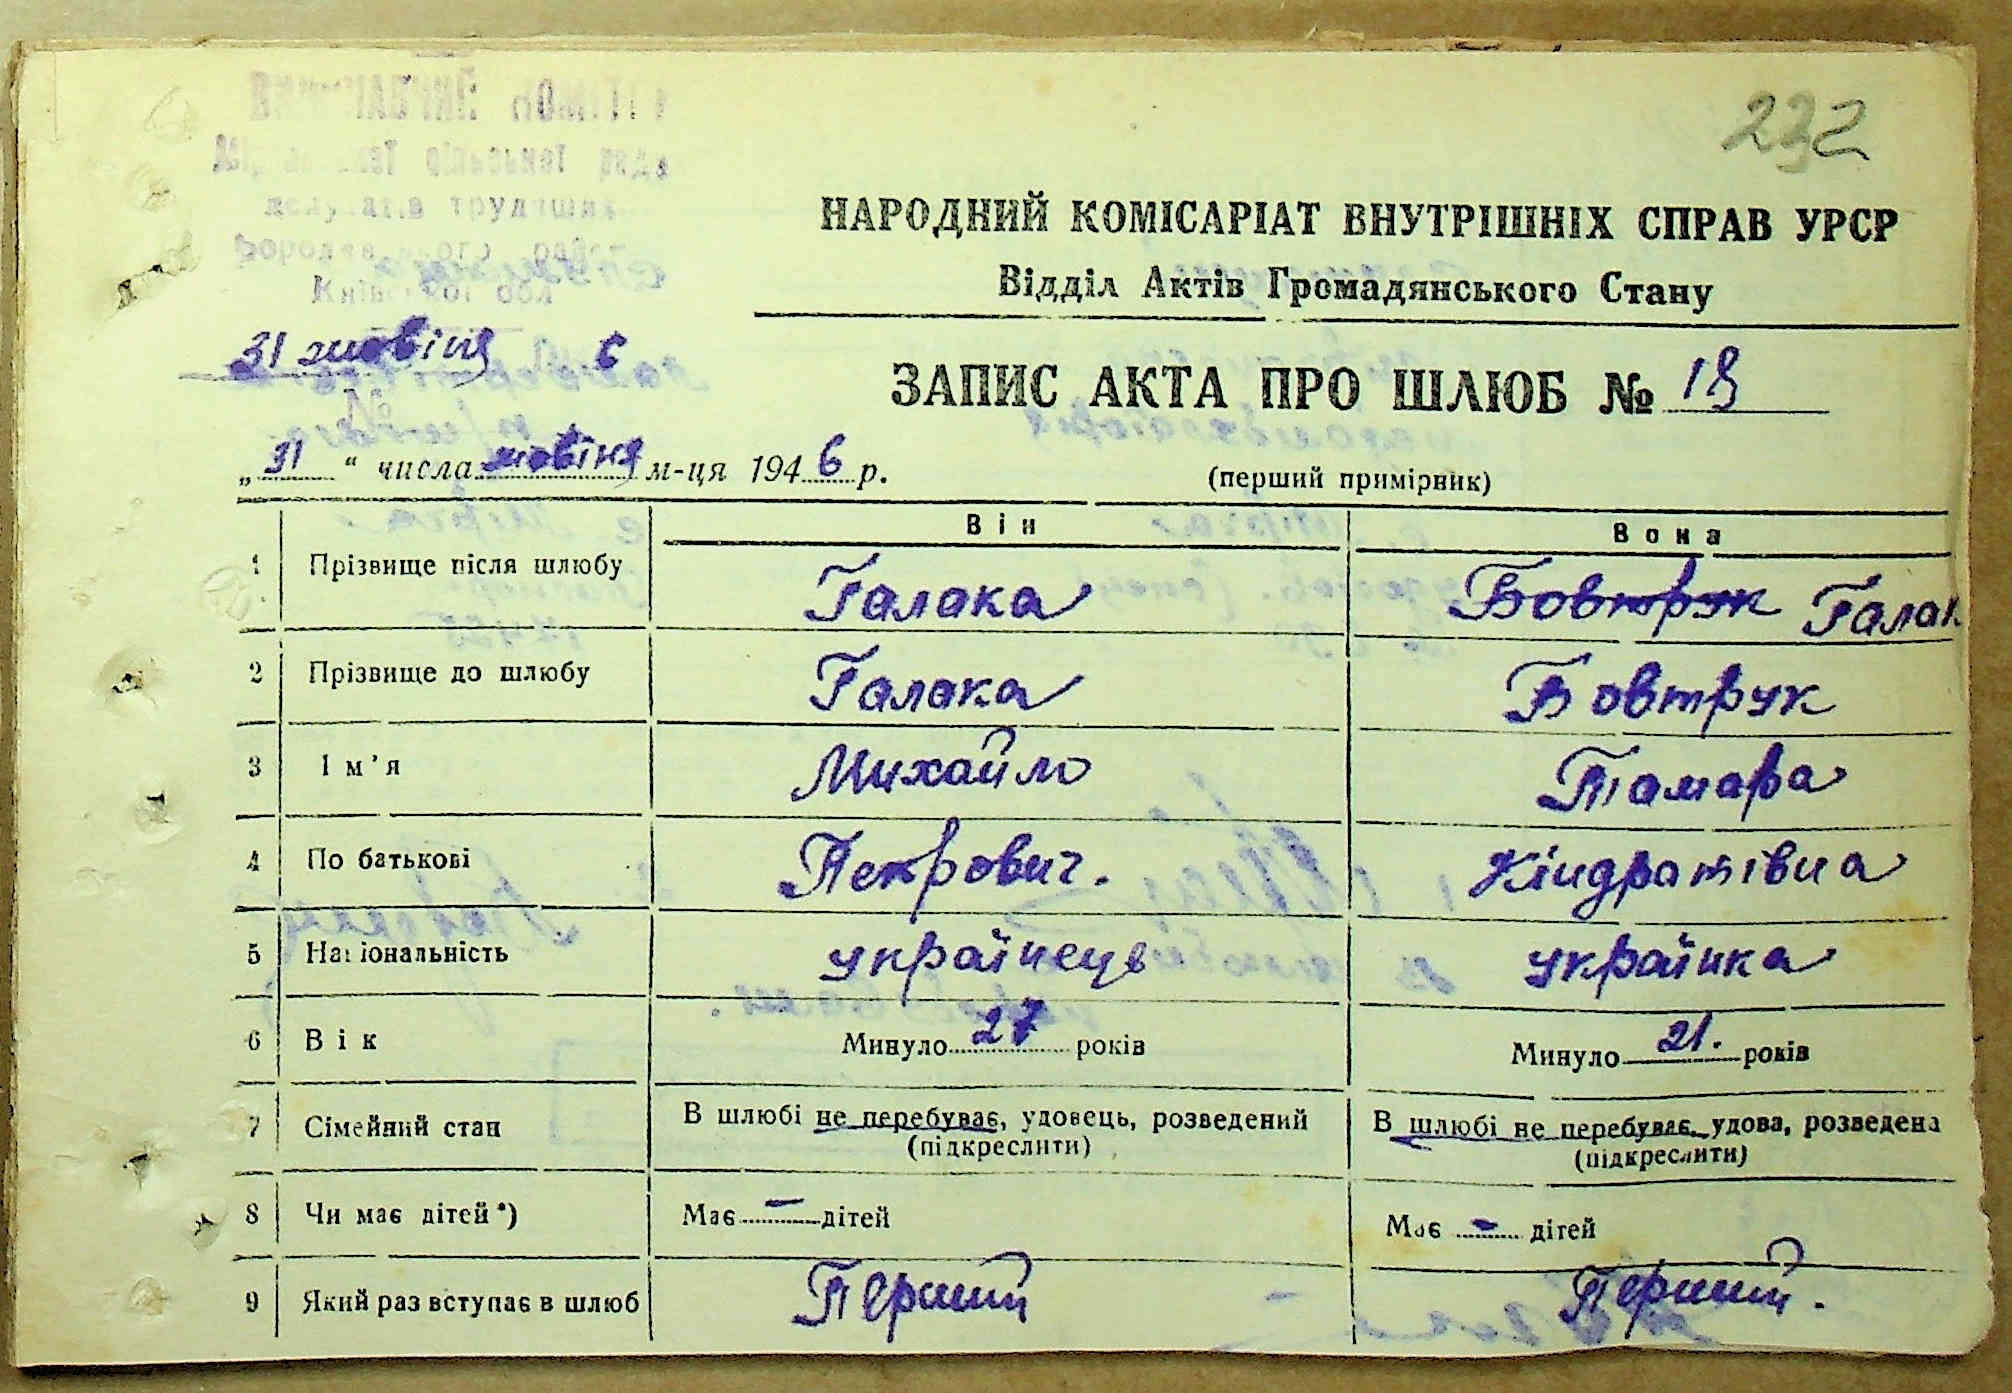 232
НАРОДНИЙ КОМІСАРІАТ ВНУТРІШНІХ СПРАВ УРСР
Відділ Актів Громадянського Стану
депутатів трудящих
Київської обл
31 жовтня 6
№
ЗАПИС АКТА ПРО ШЛЮБ №
„31“ числа жовтня м-ця 1946 р.
(перший примірник)
Він Вона
1 Прізвище після шлюбу Галака Бовтрук Галак
2 Прізвище до шлюбу Галака Бовтрук
3 Ім’я Михайло Тамара
4 По батькові Петрович. Кіндратівна
5 Національність українець українка
6 Вік Минуло 27 років Минуло 21. років
7 Сімейний стан В шлюбі не перебуває, удовець, розведений В шлюбі не перебуває, удова, розведена
(підкреслити) (підкреслити)
8 Чи має дітей*) Має – дітей Має – дітей
9 Який раз вступає в шлюб Перший Перший.